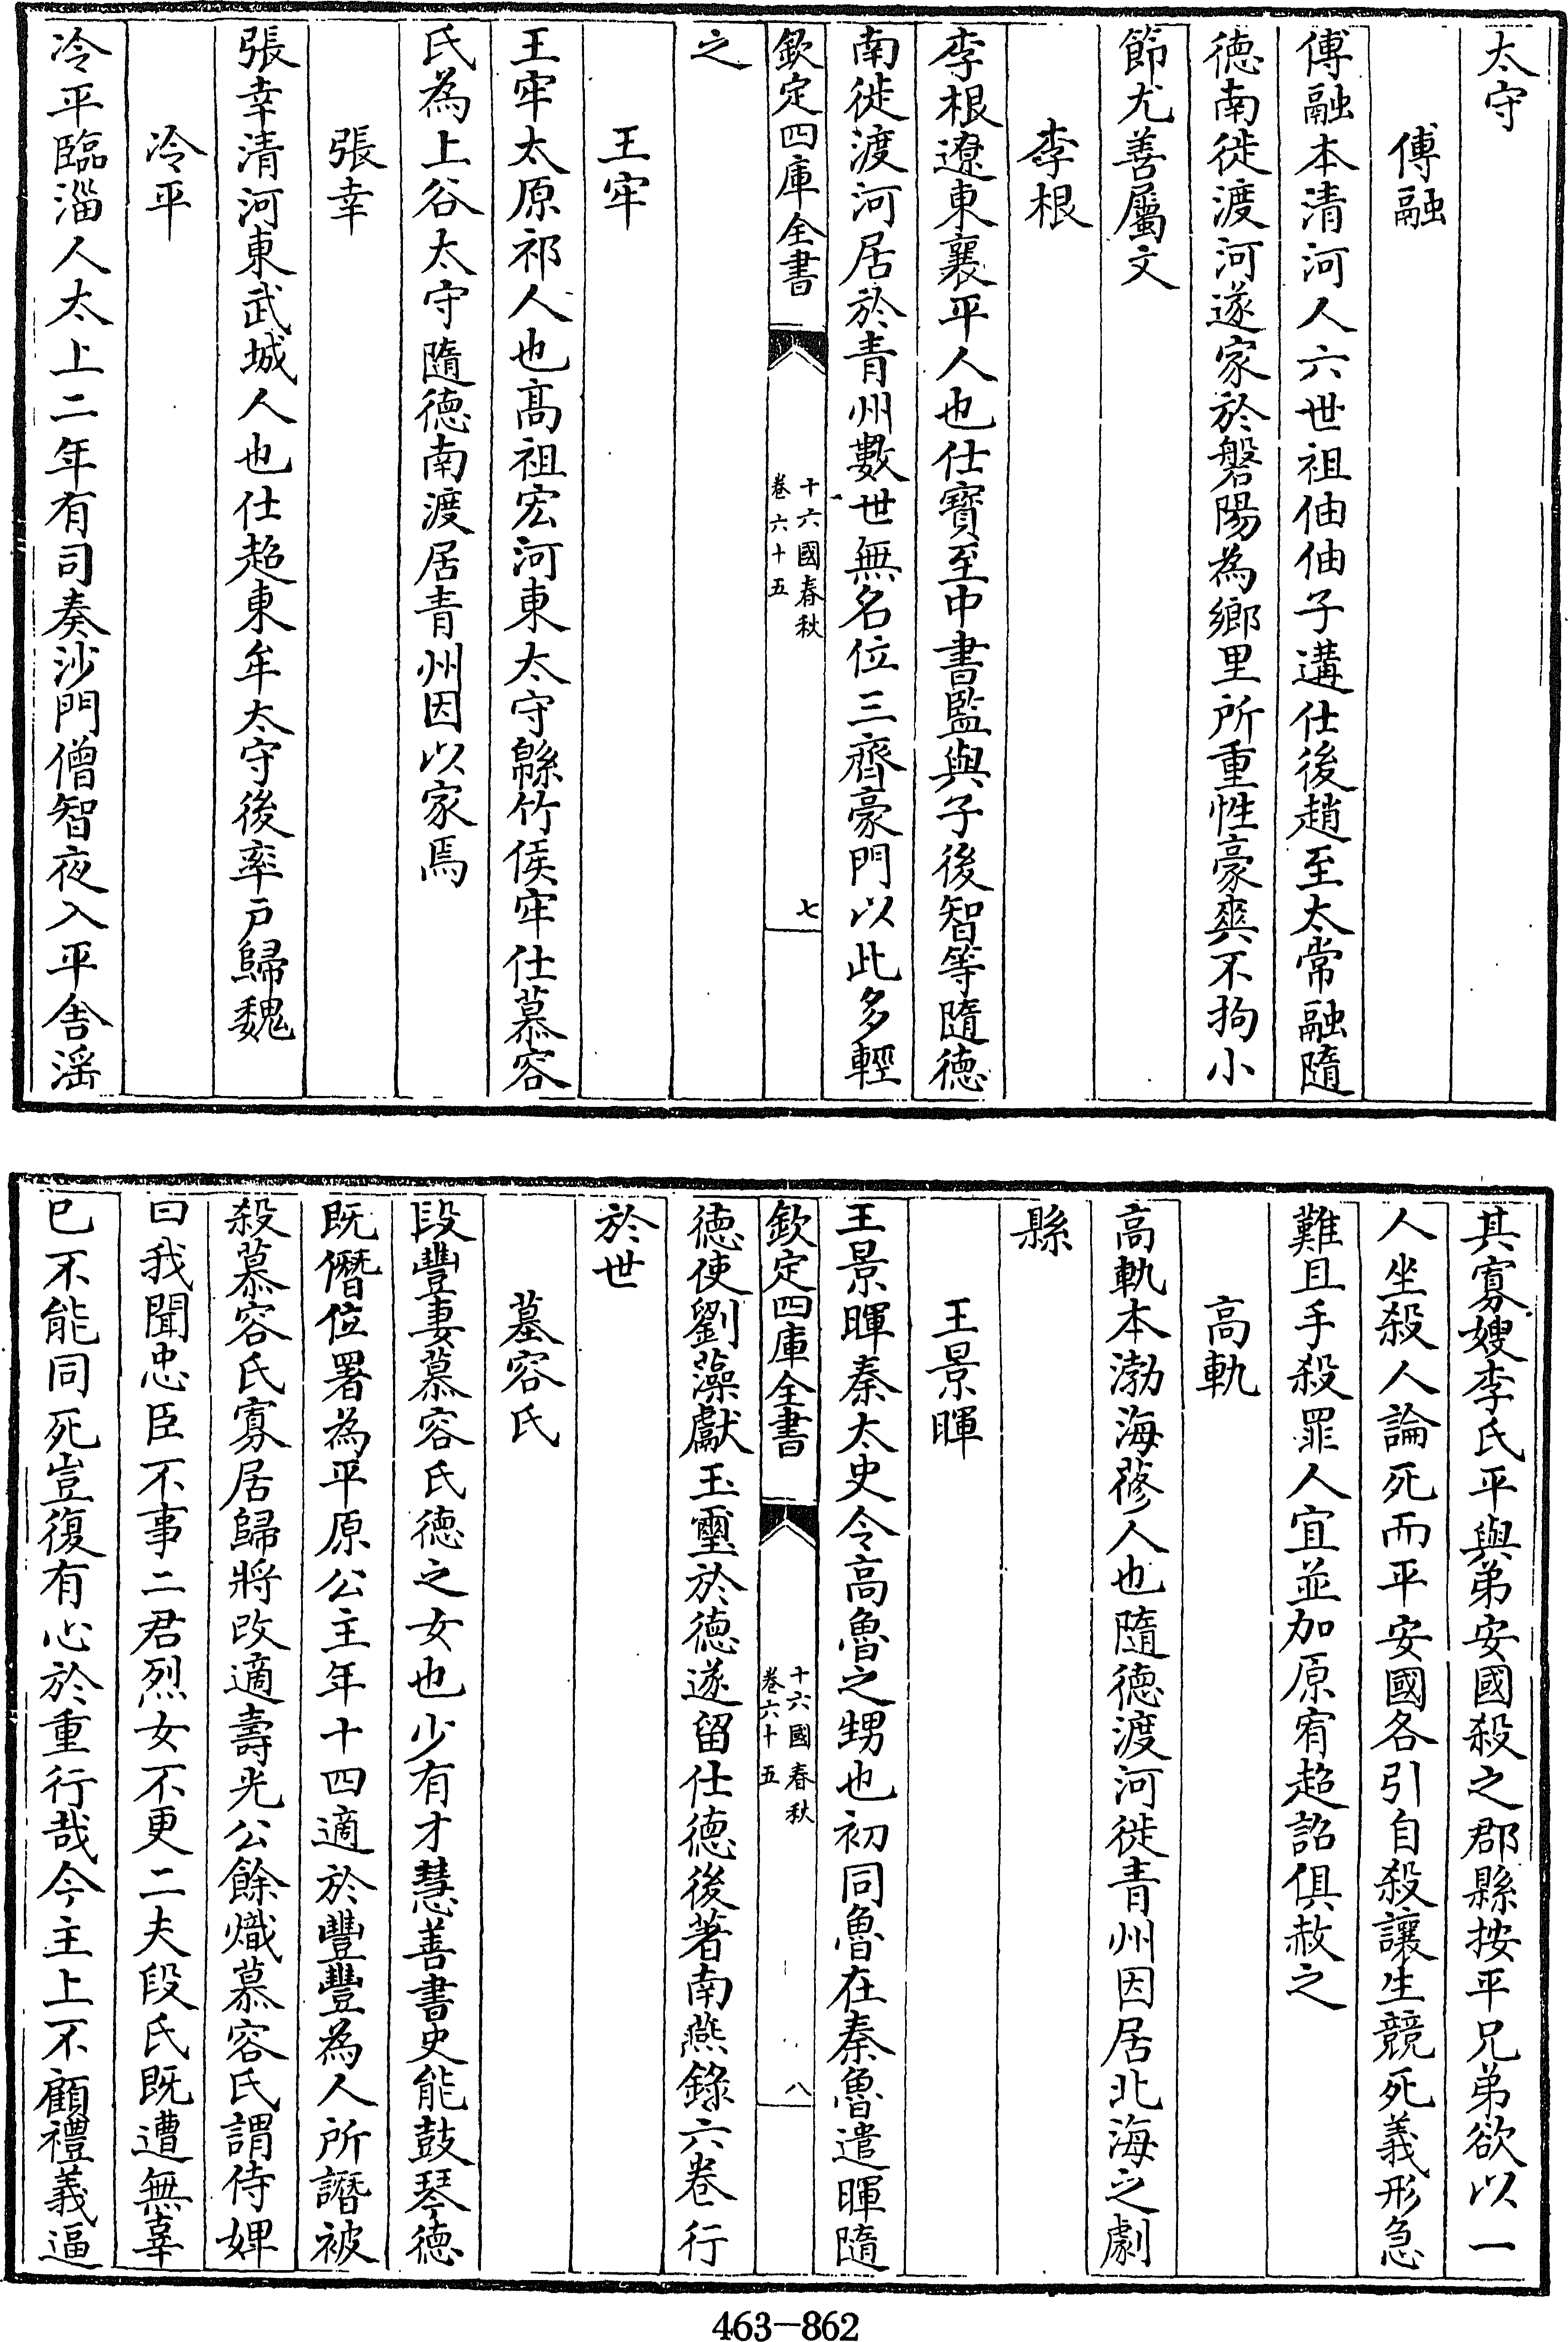 太守
傅融
傅融本清河人六世祖伷伷子遘仕後趙至太常融隨
徳南徙渡河遂家於磐陽為鄉里所重性豪爽不拘小
節尤善屬文
李根
李根遼東襄平人也仕寳至中書監與子後智等隨徳
南徙渡河居於青州數世無名位三齊豪門以此多輕
欽定四庫全書
十六國春秋
卷六十五
七
之
王牢
王牢太原祁人也髙祖宏河東太守緜竹侯牢仕慕容
氏為上谷太守隨徳南渡居青州因以家焉
張幸
張幸清河東武城人也仕超東牟太守後率戸歸魏
冷平
冷平臨淄人太上二年有司奏沙門僧智夜入平舍滛
其寡嫂李氏平與弟安國殺之郡縣按平兄弟欲以一
人坐殺人論死而平安國各引自殺讓生競死義形急
難且手殺罪人宜並加原宥超詔俱赦之
高軌
高軌本渤海蓨人也隨徳渡河徙青州因居北海之劇
縣
王景暉
王景暉秦太史令高魯之甥也初同魯在秦魯遣暉隨
欽定四庫全書
十六國春秋
卷六十五
八
徳使劉藻獻玉璽於徳遂留仕徳後著南燕錄六卷行
於世
墓容氏
段豐妻慕容氏徳之女也少有才慧善書史能鼓琴徳
既僭位署為平原公主年十四適於豐豐為人所譖被
殺慕容氏寡居歸將改適壽光公餘熾慕容氏謂侍婢
曰我聞忠臣不事二君烈女不更二夫段氏既遭無辜
已不能同死豈復有心於重行哉今主上不顧禮義逼
463-862